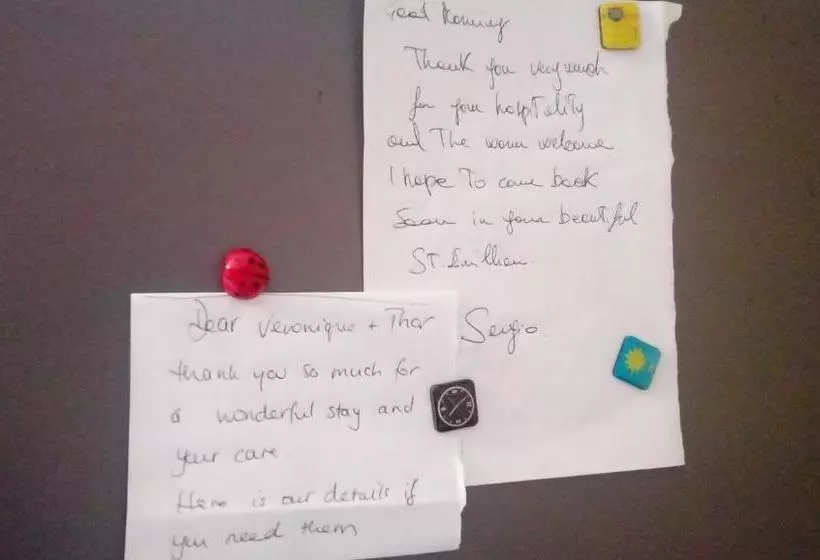 Good Morning
Thank you very much
for your hospitality
and The warm welcome
I hope To come back
Soon in your beautiful
ST. Emillion.
Sergio
Dear Veronique + Thor
thank you so much for
a wonderful stay and
your care
Here is our details if
you need them